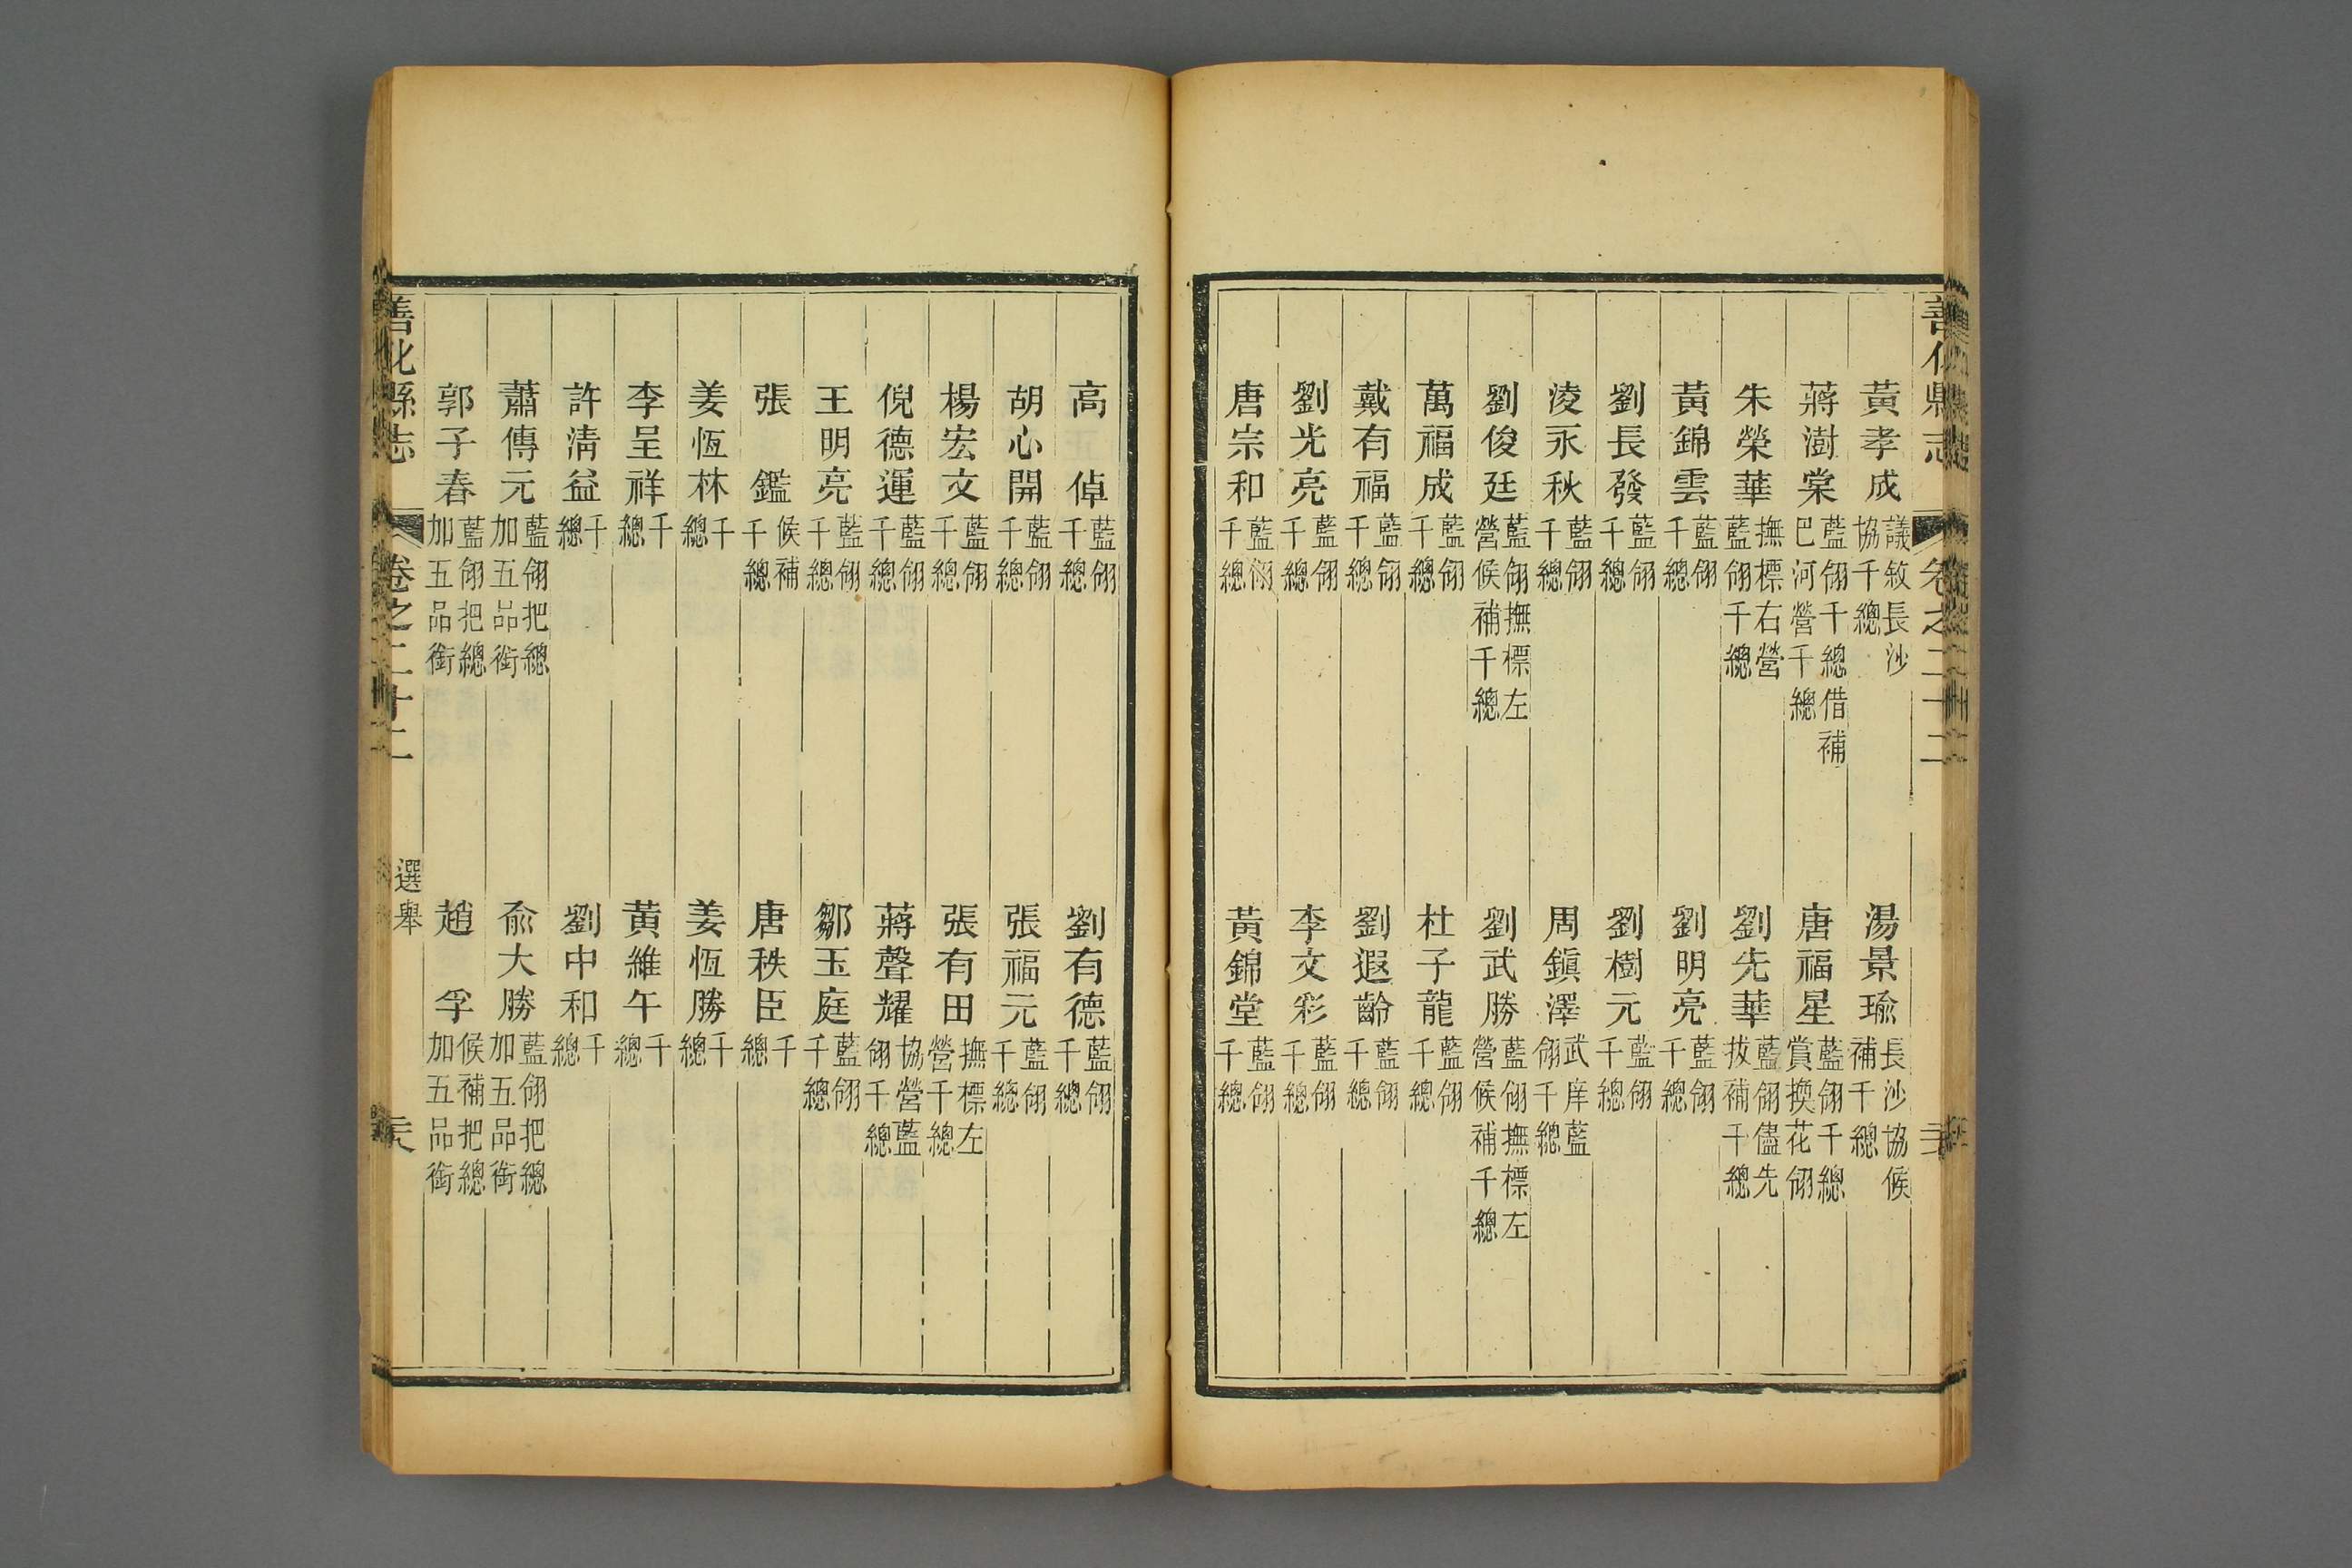 善化縣志 卷之二十二
黃孝成 議敘長沙協千總 湯景瑜 長沙協候補千總
蔣澍棠 藍翎千總借補巴河營千總 唐福星 藍翎千總賞換花翎
朱榮華 撫標右營藍翎千總 劉先華 藍翎儘先拔補千總
黃錦雲 藍翎千總 劉明亮 藍翎千總
劉長發 藍翎千總 劉樹元 藍翎千總
淩永秋 藍翎千總 周鎭澤 武庠藍翎千總
劉俊廷 藍翎撫標左營候補千總 劉武勝 藍翎撫標左營候補千總
萬福成 藍翎千總 杜子龍 藍翎千總
戴有福 藍翎千總 劉遐齡 藍翎千總
劉光亮 藍翎千總 李文彩 藍翎千總
唐宗和 藍翎千總 黃錦堂 藍翎千總
高倬 藍翎千總 劉有德 藍翎千總
胡心開 藍翎千總 張福元 藍翎千總
楊宏文 藍翎千總 張有田 撫標左營千總
倪德運 藍翎千總 蔣聲耀 協營藍翎千總
王明亮 藍翎千總 鄒玉庭 藍翎千總
張鑑 候補千總 唐秩臣 千總
姜恆林 千總 姜恆勝 千總
李呈祥 千總 黃維午 千總
許清益 千總 劉中和 千總
蕭傳元 藍翎把總加五品銜 俞大勝 藍翎把總加五品銜
郭子春 藍翎把總加五品銜 趙孚 候補把總加五品銜
善化縣志 卷之二十二 選舉